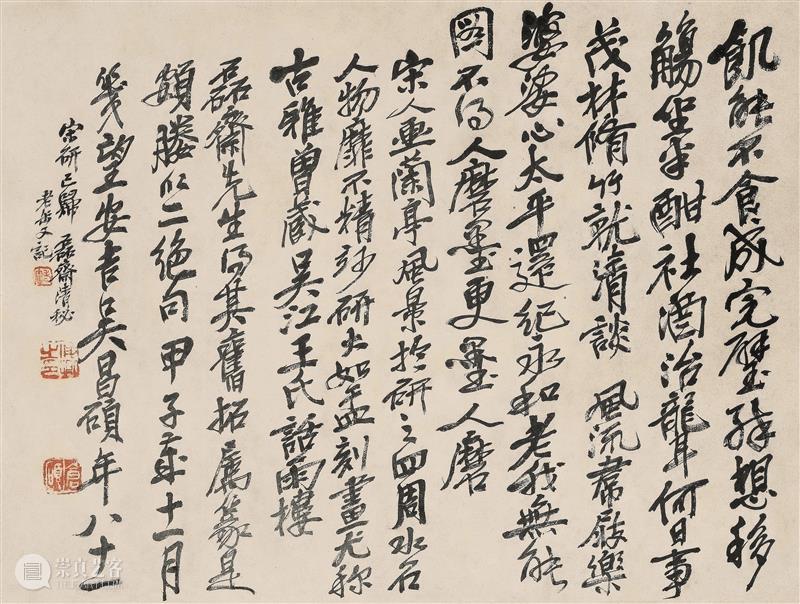 飢能不食成完璧殊想移
觴坐半酣社酒治聾何日事
茂林脩竹就清談 風流羣屐樂
婆娑心太平還紀永和老我無能
圖不得人磨墨更墨人磨
宋人画蘭亭風景於研之四周水石
人物靡不精妙研大如盂刻畫尤称
古雅曾藏吴江王氏話雨樓
磊齋先生得其舊拓屬篆是
額媵以二絶句甲子歲十一月
幾望安吉吴昌碩年八十一
宋研已歸 磊齋清秘
老缶又記
俊卿之印
倉碩
崇真艺客